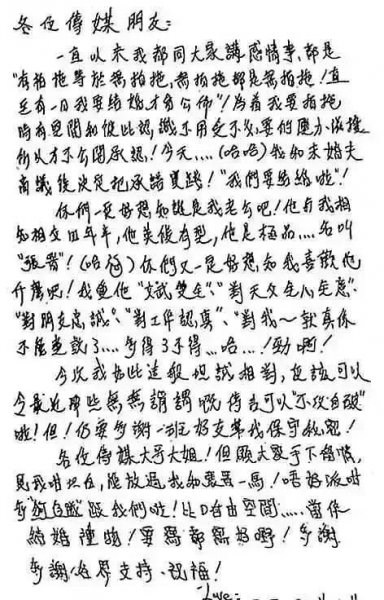 各位傳媒朋友:
一直以來我都同大家講感情事，都是
"有拍拖等於無拍拖，無拍拖都是無拍拖！直
至有一日我要結婚才會公佈"！為着我要拍拖
時有空間和彼此認識不用受不必要的壓力
所以才不公開承認！今天....(哈哈)我和未婚夫
商議後決定把承諾實踐！"我們要結婚啦"！
你們一定好想知誰是我老公吧！他與我相
知相交四年半，他英俊有型，他是極品....名叫
"張晉"！(哈哈)你們又一定好想知我喜歡他
什麼吧！我愛他"文武雙全"、"對天父全心全意"、
"對朋友忠誠"、"對工作認真"、"對我～就真係
不能盡說了....多得3不得...哈...！勁啊！
今次我如此這般坦誠相對，應該可以
令最近那些無無謂謂嘅傳言可以"不攻自破"
啦！但！仍要多謝一班好友幫我保守秘密！
各位傳媒大哥大姐！但願大家手下留情，
見我咁坦白，應放過我如意置一馬！唔好派咁
多"狗自隊"跟我們啦！比D自由空間.....當係
結婚禮物！要寫都寫好嘢！多謝
多謝各界支持、祝福！
Love: